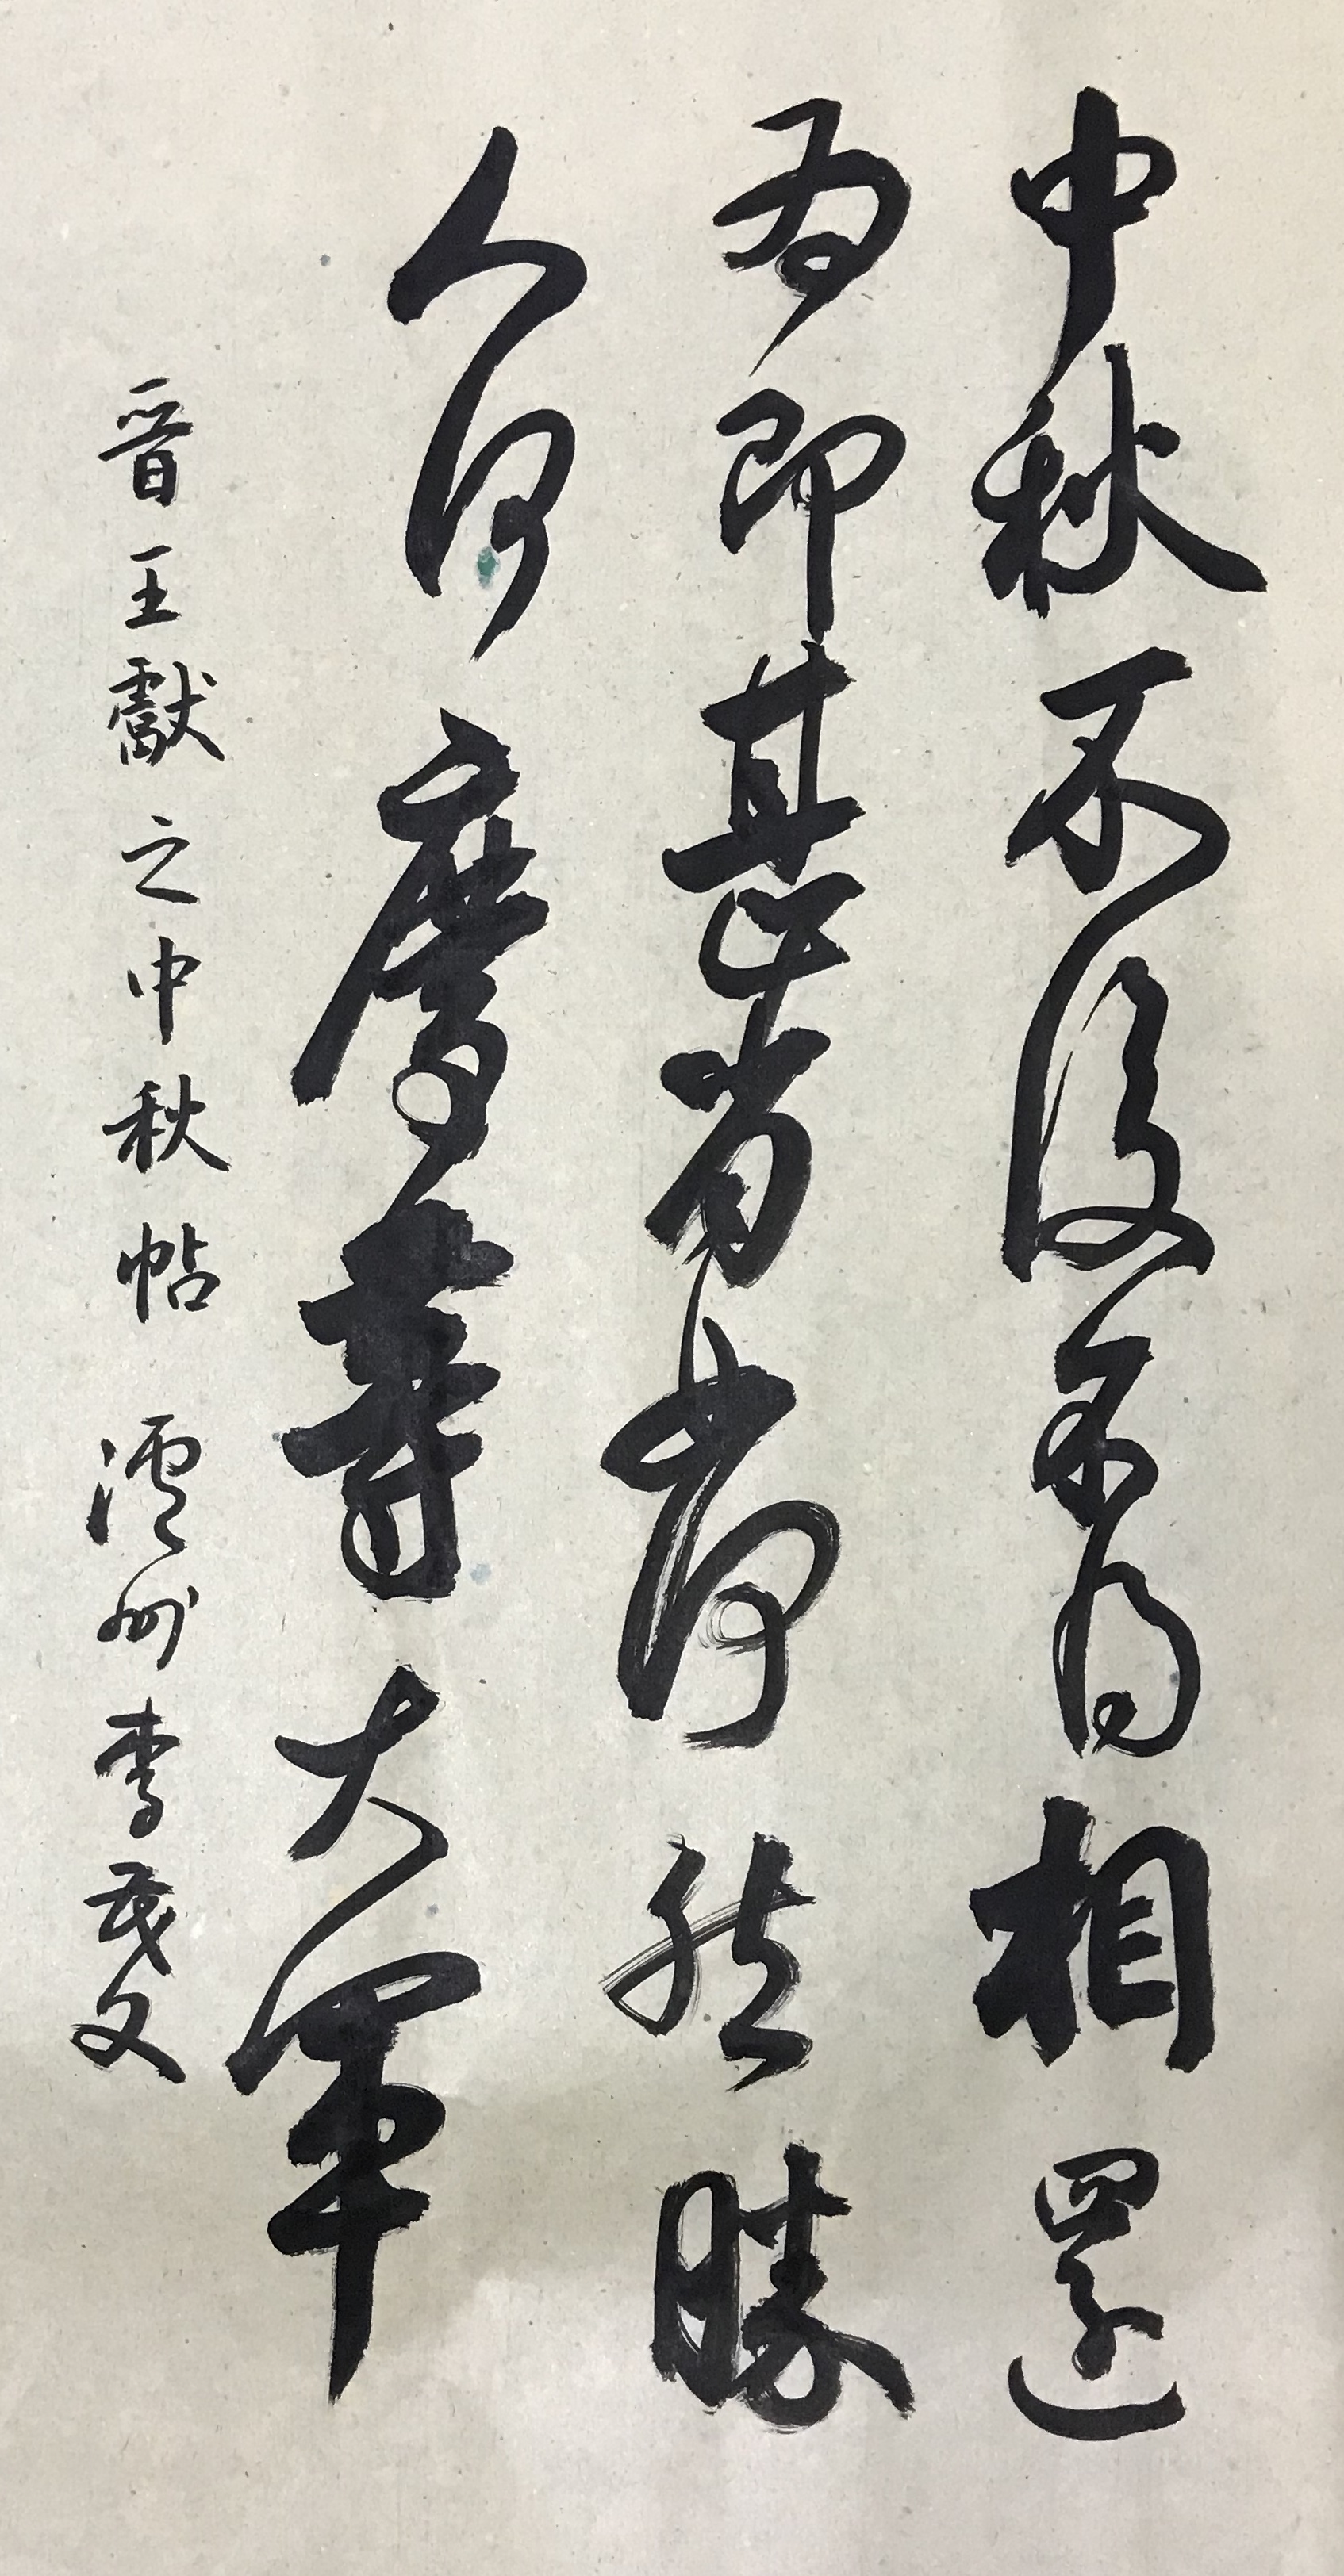 中秋不復不得相還
為即甚省如何然勝
人何慶等大軍
晉王獻之中秋帖 澐州李茂文